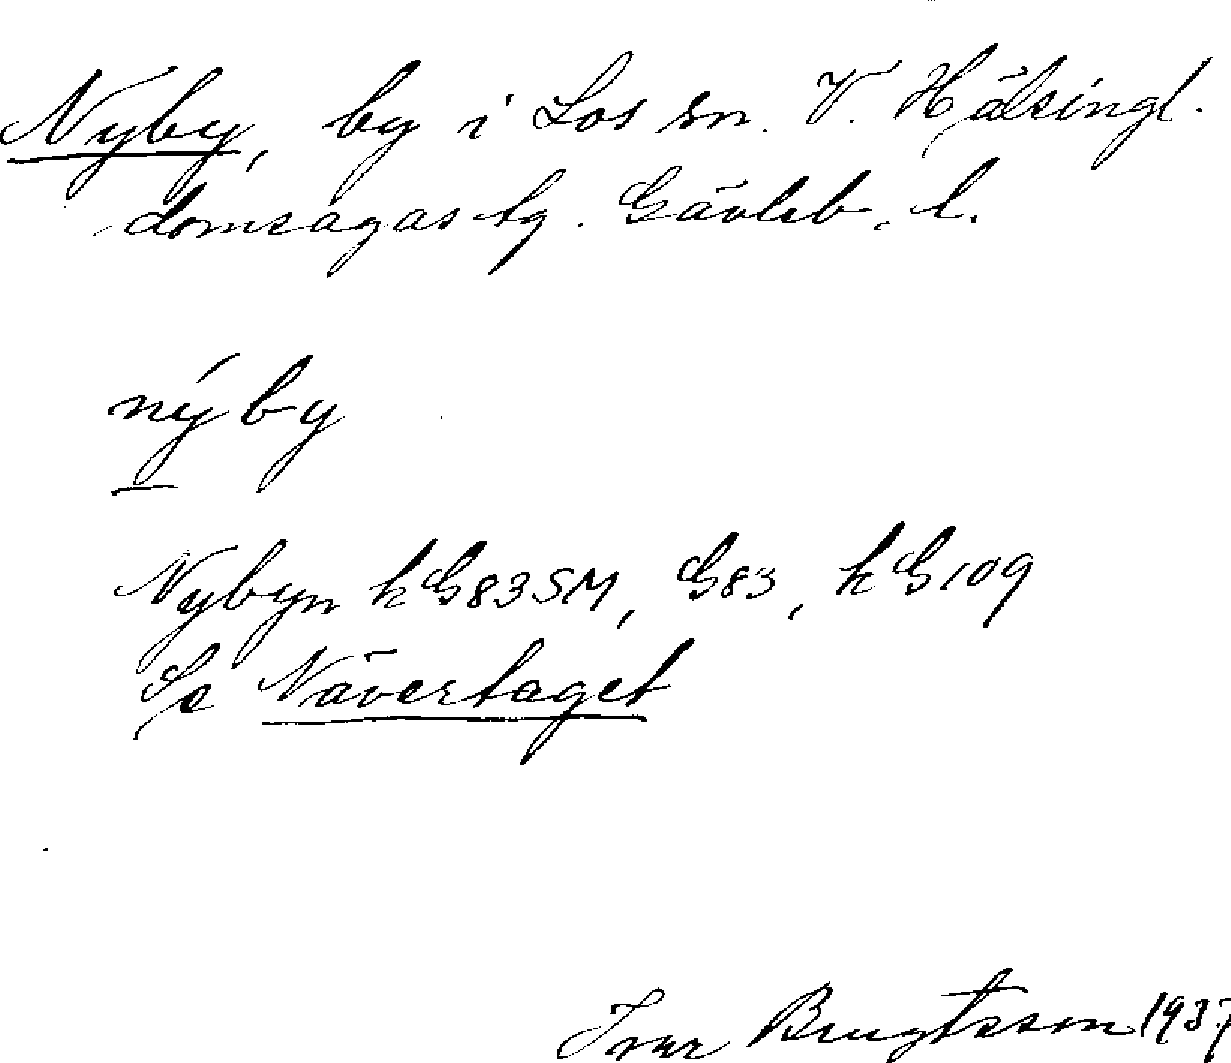 Nyby, by i Los sn. V. Hälsingl.
domsagas tg. Gävleb. l.
nýby
Nybyn kG83SM, G83, kG109
Se Nävertaget
Ivar Bengtsson 1937